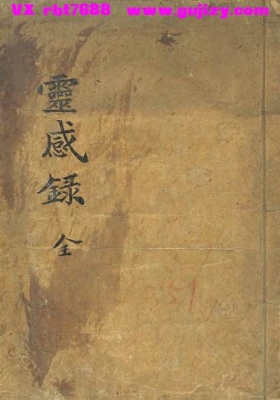 VX.rbt7688 www.gujizy.com
靈感録
全
351